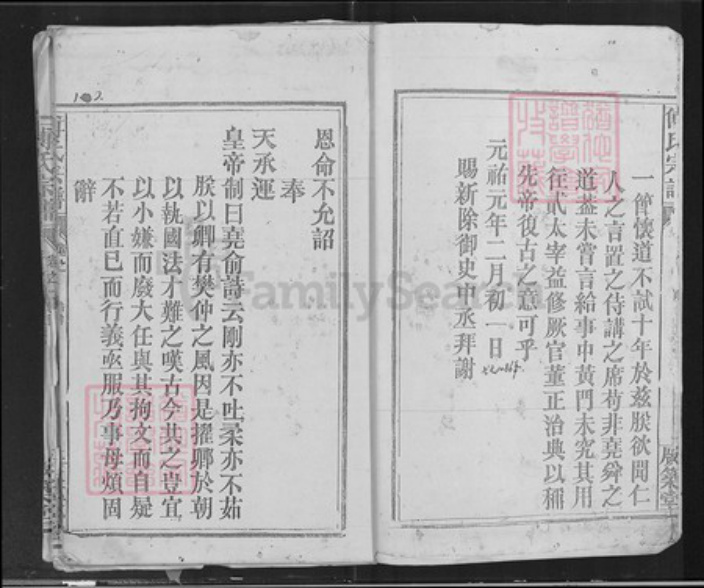 傅氏宗譜
一節懷道不試十年於兹朕欲聞仁
人之言置之侍講之席苟非堯舜之
道葢未嘗言給事中黃門未究其用
徃貳太宰益修厥官董正治典以稱
先帝復古之意可乎
元祐元年二月初一日
賜新除御史中丞拜謝
恩命不允詔
奉
天承運
皇帝制曰堯俞詩云剛亦不吐柔亦不茹
朕以卿有樊仲之風因是擢卿於朝
以執國法才難之嘆古今共之豈宜
以小嫌而廢大任與其拘文而自疑
不若直已而行義亟服乃事毋煩固
辭
FamilySearch